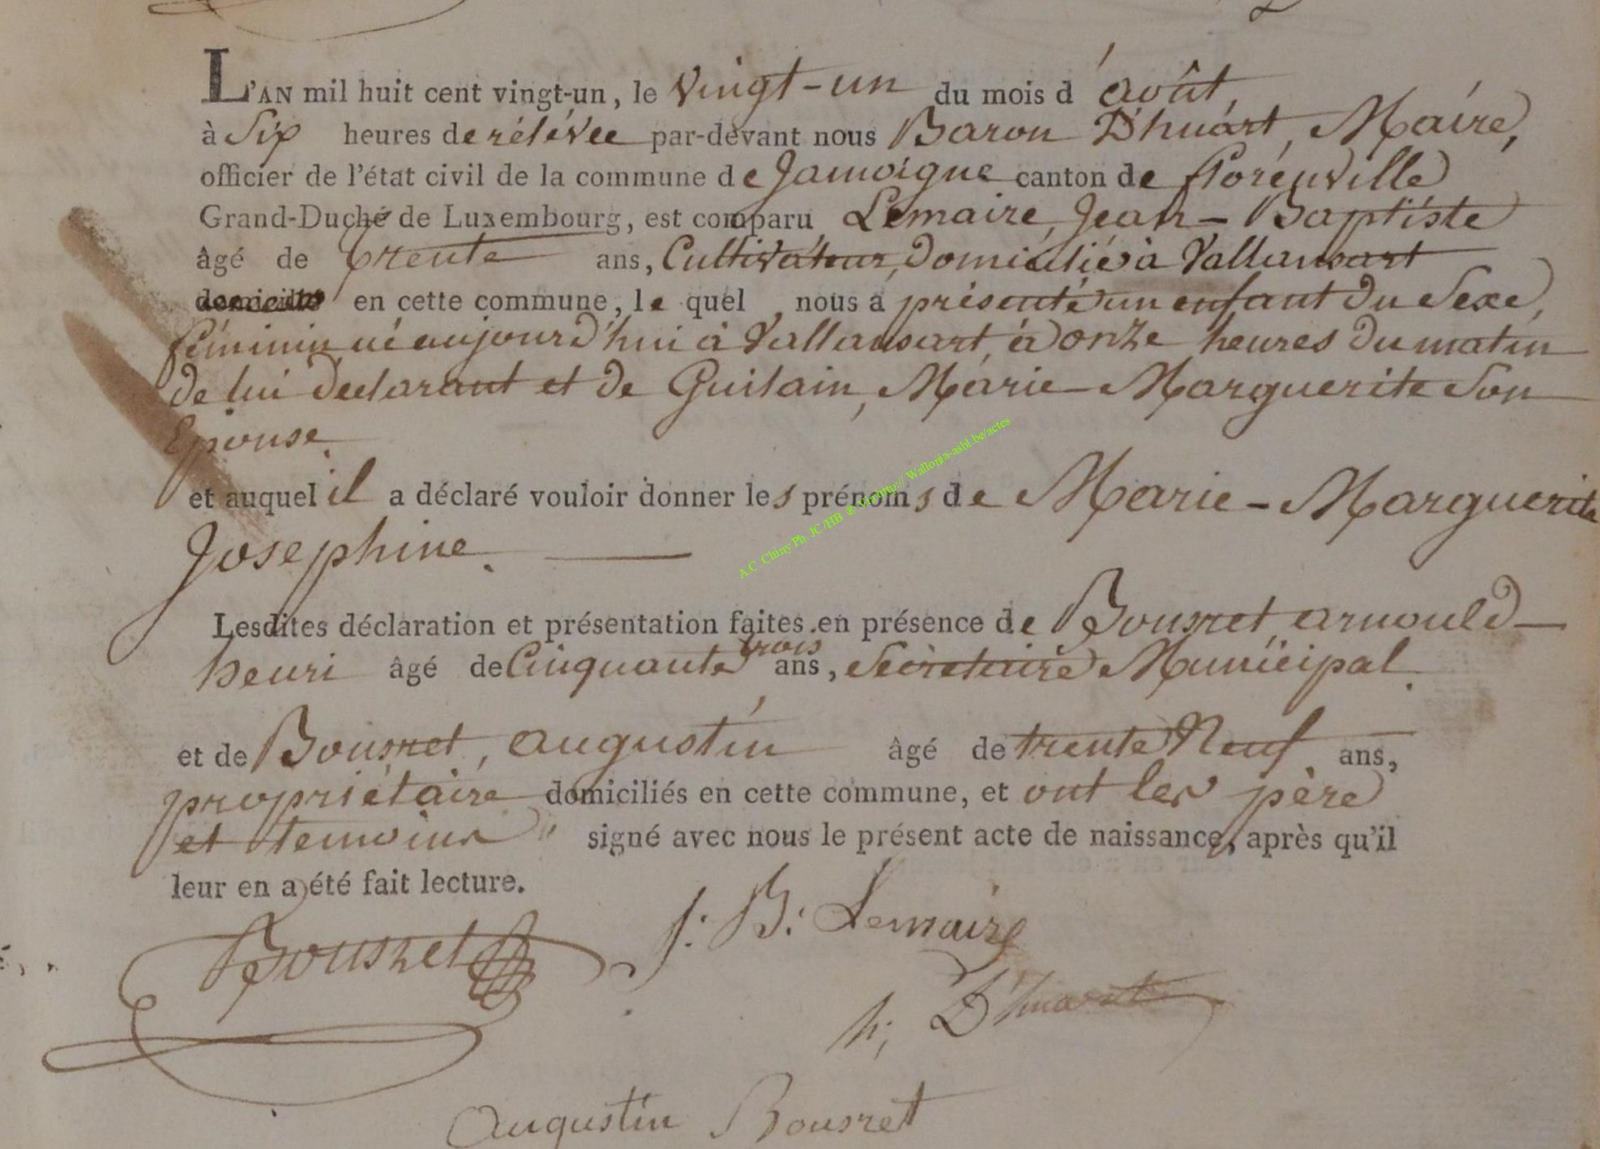 L'AN mil huit cent vingt-un, le vingt-un du mois d'août,
à Six heures de rélévée par-devant nous Baron D'huart, Maire,
officier de l'état civil de la commune de Jamoigne canton de florenville
Grand-Duché de Luxembourg, est comparu Lemaire, Jean-Baptiste
âgé de trente ans, Cultivateur, domicilié à Vallansart
en cette commune, le quel nous a présenté un enfant du Sexe,
féminin, né aujourd'hui à Vallansart, à onze heures du matin
de lui déclarant et de Guilain, Marie-Marguerite Son
Epouse.
et auquel il a déclaré vouloir donner les prénoms de Marie-Marguerite
Josephine.
Lesdites déclaration et présentation faites en présence de Bousret, arnould-
henri âgé de Cinquante trois ans, Sécrétaire Municipal.
et de Bousret, augustin âgé de trente Neuf ans,
propriétaire domiciliés en cette commune, et ont les père
et temoins signé avec nous le présent acte de naissance, après qu'il
leur en a été fait lecture.
Bousret J: B: Lemaire
h; D'huart
augustin Bousret
A.C. Chiny Ph. JC /HB Wallonia-asbl.be/actes